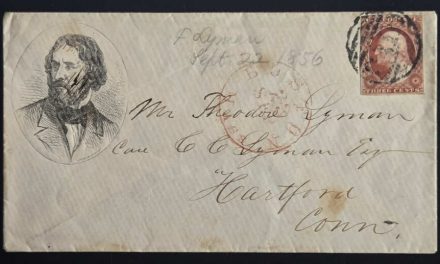 F Lyman
Sept. 22 1856
THREE CENTS
Mr Theodore Lyman
Care C C Lyman Esq
Hartford
Conn.